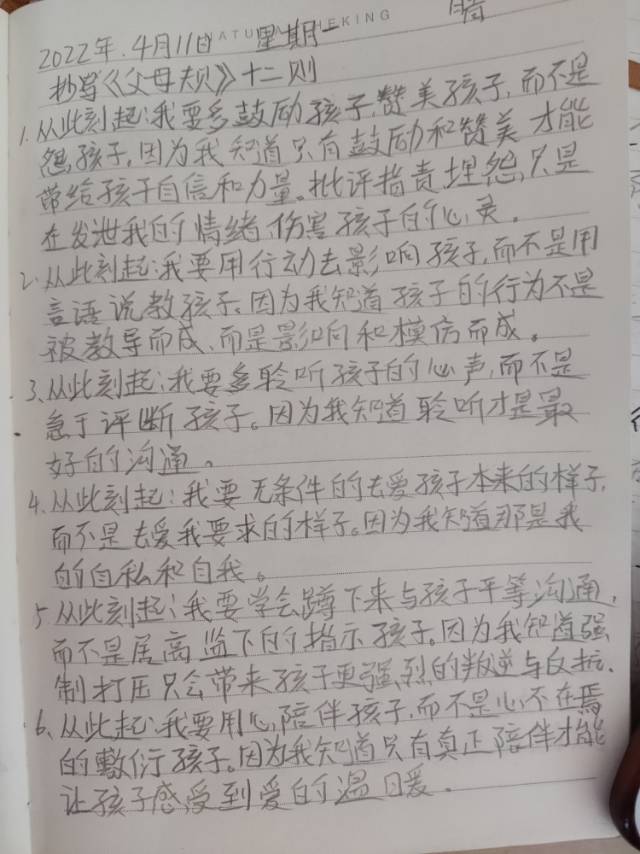 2022年.4月11日 星期一 晴
抄写《父母规》十二则
1.从此刻起:我要多鼓励孩子,赞美孩子,而不是
怨孩子,因为我知道只有鼓励和赞美才能
带给孩子自信和力量。批评指责埋怨,只是
在发泄我的情绪伤害孩子的心灵。
2.从此刻起:我要用行动去影响孩子,而不是用
言语说教孩子。因为我知道孩子的行为不是
被教导而成,而是影响和模仿而成。
3、从此刻起:我要多聆听孩子的心声,而不是
急于评断孩子。因为我知道聆听才是最
好的沟通。
4、从此刻起:我要无条件的去爱孩子本来的样子,
而不是去爱我要求的样子。因为我知道那是我
的自私和自我。
5从此刻起:我要学会蹲下来与孩子平等沟通,
而不是居高监下的指示孩子。因为我知道强
制打压只会带来孩子更强烈的叛逆与反抗.
6、从此起:我要用心陪伴孩子,而不是心不在焉
的敷衍孩子。因为我知道只有真正陪伴才能
让孩子感受到爱的温暖.